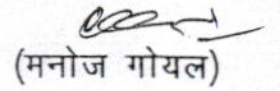 (मनोज गोयल)